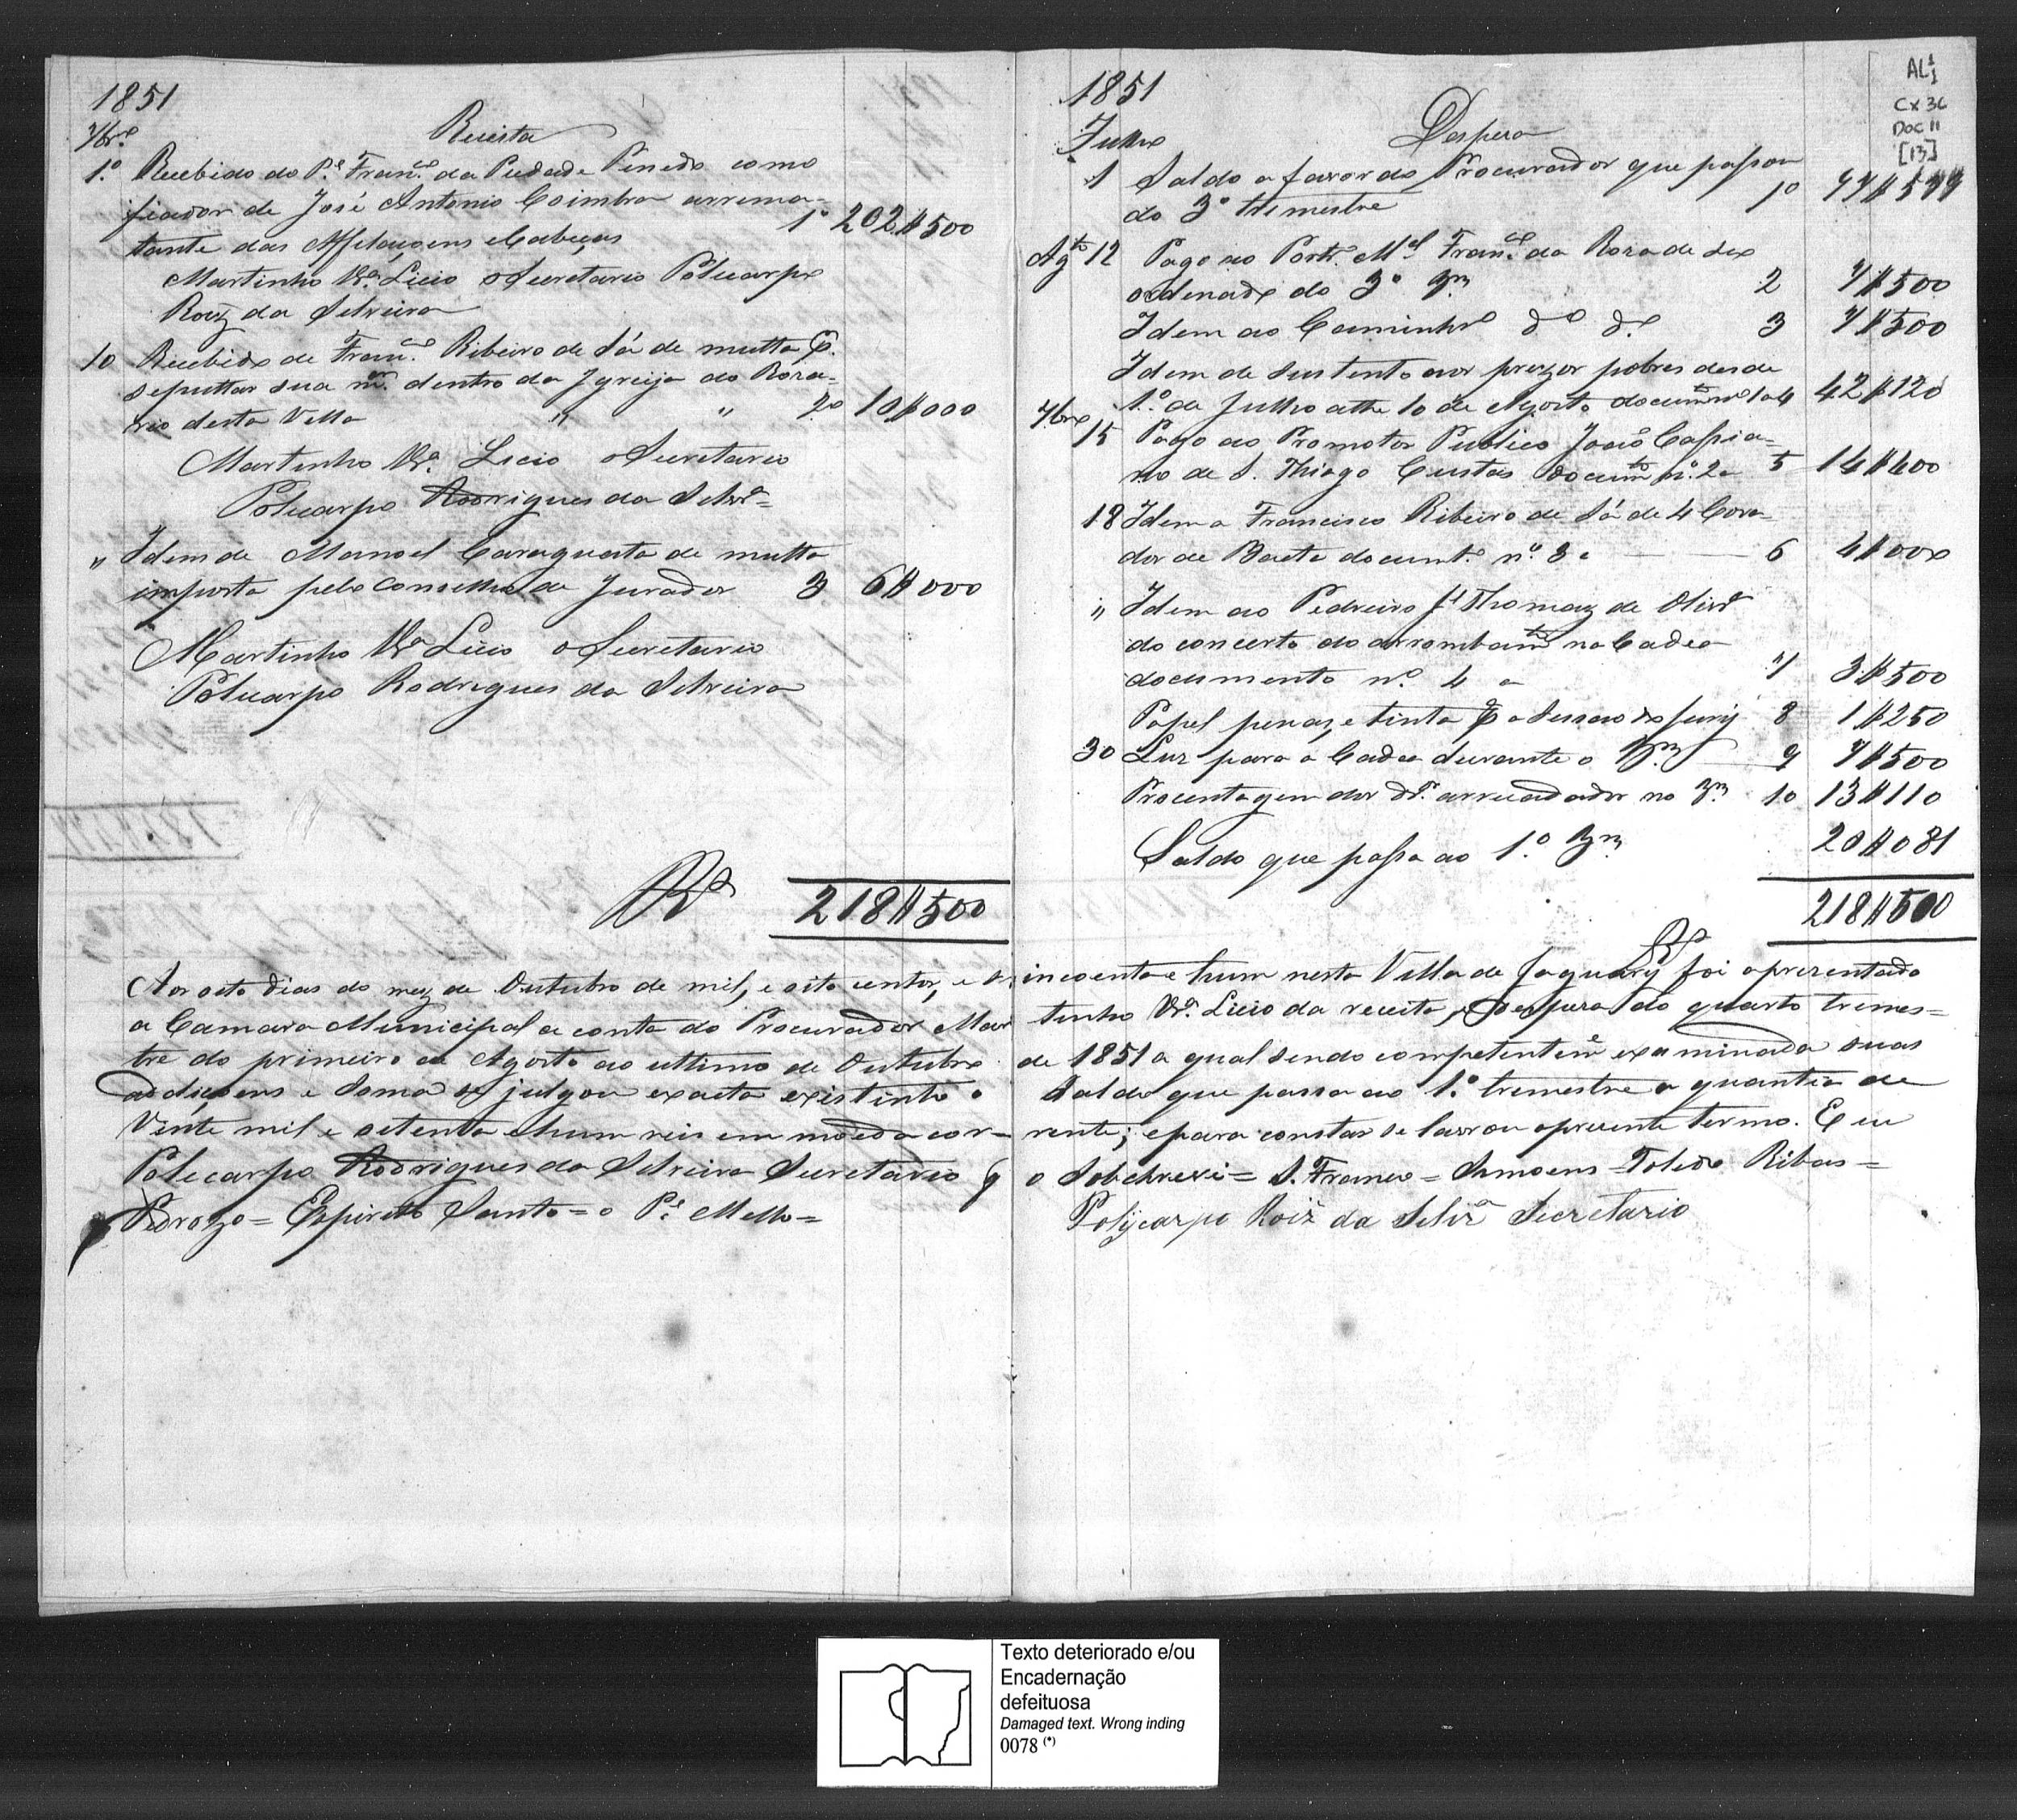 1851
7br.º
Receita
1.º Recebido do P.e Fran.co da Piedade Penedo como
fiador de José Antonio Coimbra arrema-
tante das Affilaçoens e Cabeças 1º 202$500
Martinho Vr.a Licio o Secretario Policarpo
Roiz da Silveira
10 Recebido de Fran.co Ribeiro de Sá de multa p.
sepultar sua m.er dentro da Igreija do Roza-
rio desta Villa " " 2º 10$000
Martinho Vr.a Licio o Secretario
Policarpo Rodrigues da Silvr.a
" Idem de Manoel Caraguata de multa
imposta pelo Conselho de Jurados 3 6$000
Martinho Vr.a Licio o Secretario
Policarpo Rodrigues da Silveira
Rs 218$500
1851
Julho
Despeza
1 Saldo a favor do Procurador que passou
do 3º trimestre 1º
Ag.to 12 Pago ao Port.º M.el Fran.co da Roza de seo
ordenado do 3º 3m. 2 7$500
Idem ao Caminhr.o d.º d.º 3 7$500
Idem de sustento aos prezos pobres desde
1.º de Julho athe 10 de Agosto docum.to nº 1 a 4 42$120
7bro
15 Pago ao Promotor Publico João Cassia-
no de S. Thiago Custas docum.to nº. 2 a 5 14$400
18 Idem a Francisco Ribeiro de Sá de 4 Cova-
dos de Baeta documt.º nº 3 a 6 4$000
" Idem ao Pedreiro J.e Thomaz de Olivr.a
do concerto do arrombam.to na Cadea
documento nº 4 a 7 3$500
Papel penas, e tinta p.a a Sessão do Jury 8 1$250
30 Luz para a Cadea durante o 3m. 9 7$500
Procentagem dos dr.os arrecadados no 3m. 10 13$110
Saldo que passa ao 1.º 3m. 20$081
218$500
Rs
Aos oito dias do mez de Outubro de mil, e oito centos, e sincoenta e hum nesta Villa de Jaguary foi aprezentado
a Camara Municipal a conta do Procurador Martinho Vr.a Licio da receita, e despeza do quarto trimes-
tre do primeiro de Agosto ao ultimo de Outubro de 1851 a qual sendo competentem.e examinada suas
addiçoens e Soma se julgou exacta existindo o Saldo que passa ao 1.º trimestre a quantia de
Vinte mil e oitenta e hum reis em moeda cor-rente; e para constar se lavrou o prezente termo. E eu
Policarpo Rodrigues da Silveira Secretario q o Sobchrevi = S. Franco = Simoens = Toledo Ribas =
Pedrozo = Espirito Santo = o P.e Mello =
Polÿcarpo Roiz da Silvr.a Secretario
AL 1
1
CX 36
DOC 11
[13]
Texto deteriorado e/ou
Encadernação
defeituosa
Damaged text. Wrong inding
0078 (*)